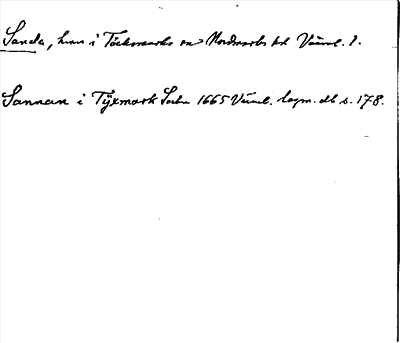 Sanda, hmn i Töcksmarks sn Nordmarks hd Värml. l.
Sannan i Tÿxmark Sochn 1665 Värml. lagm. db s. 178.